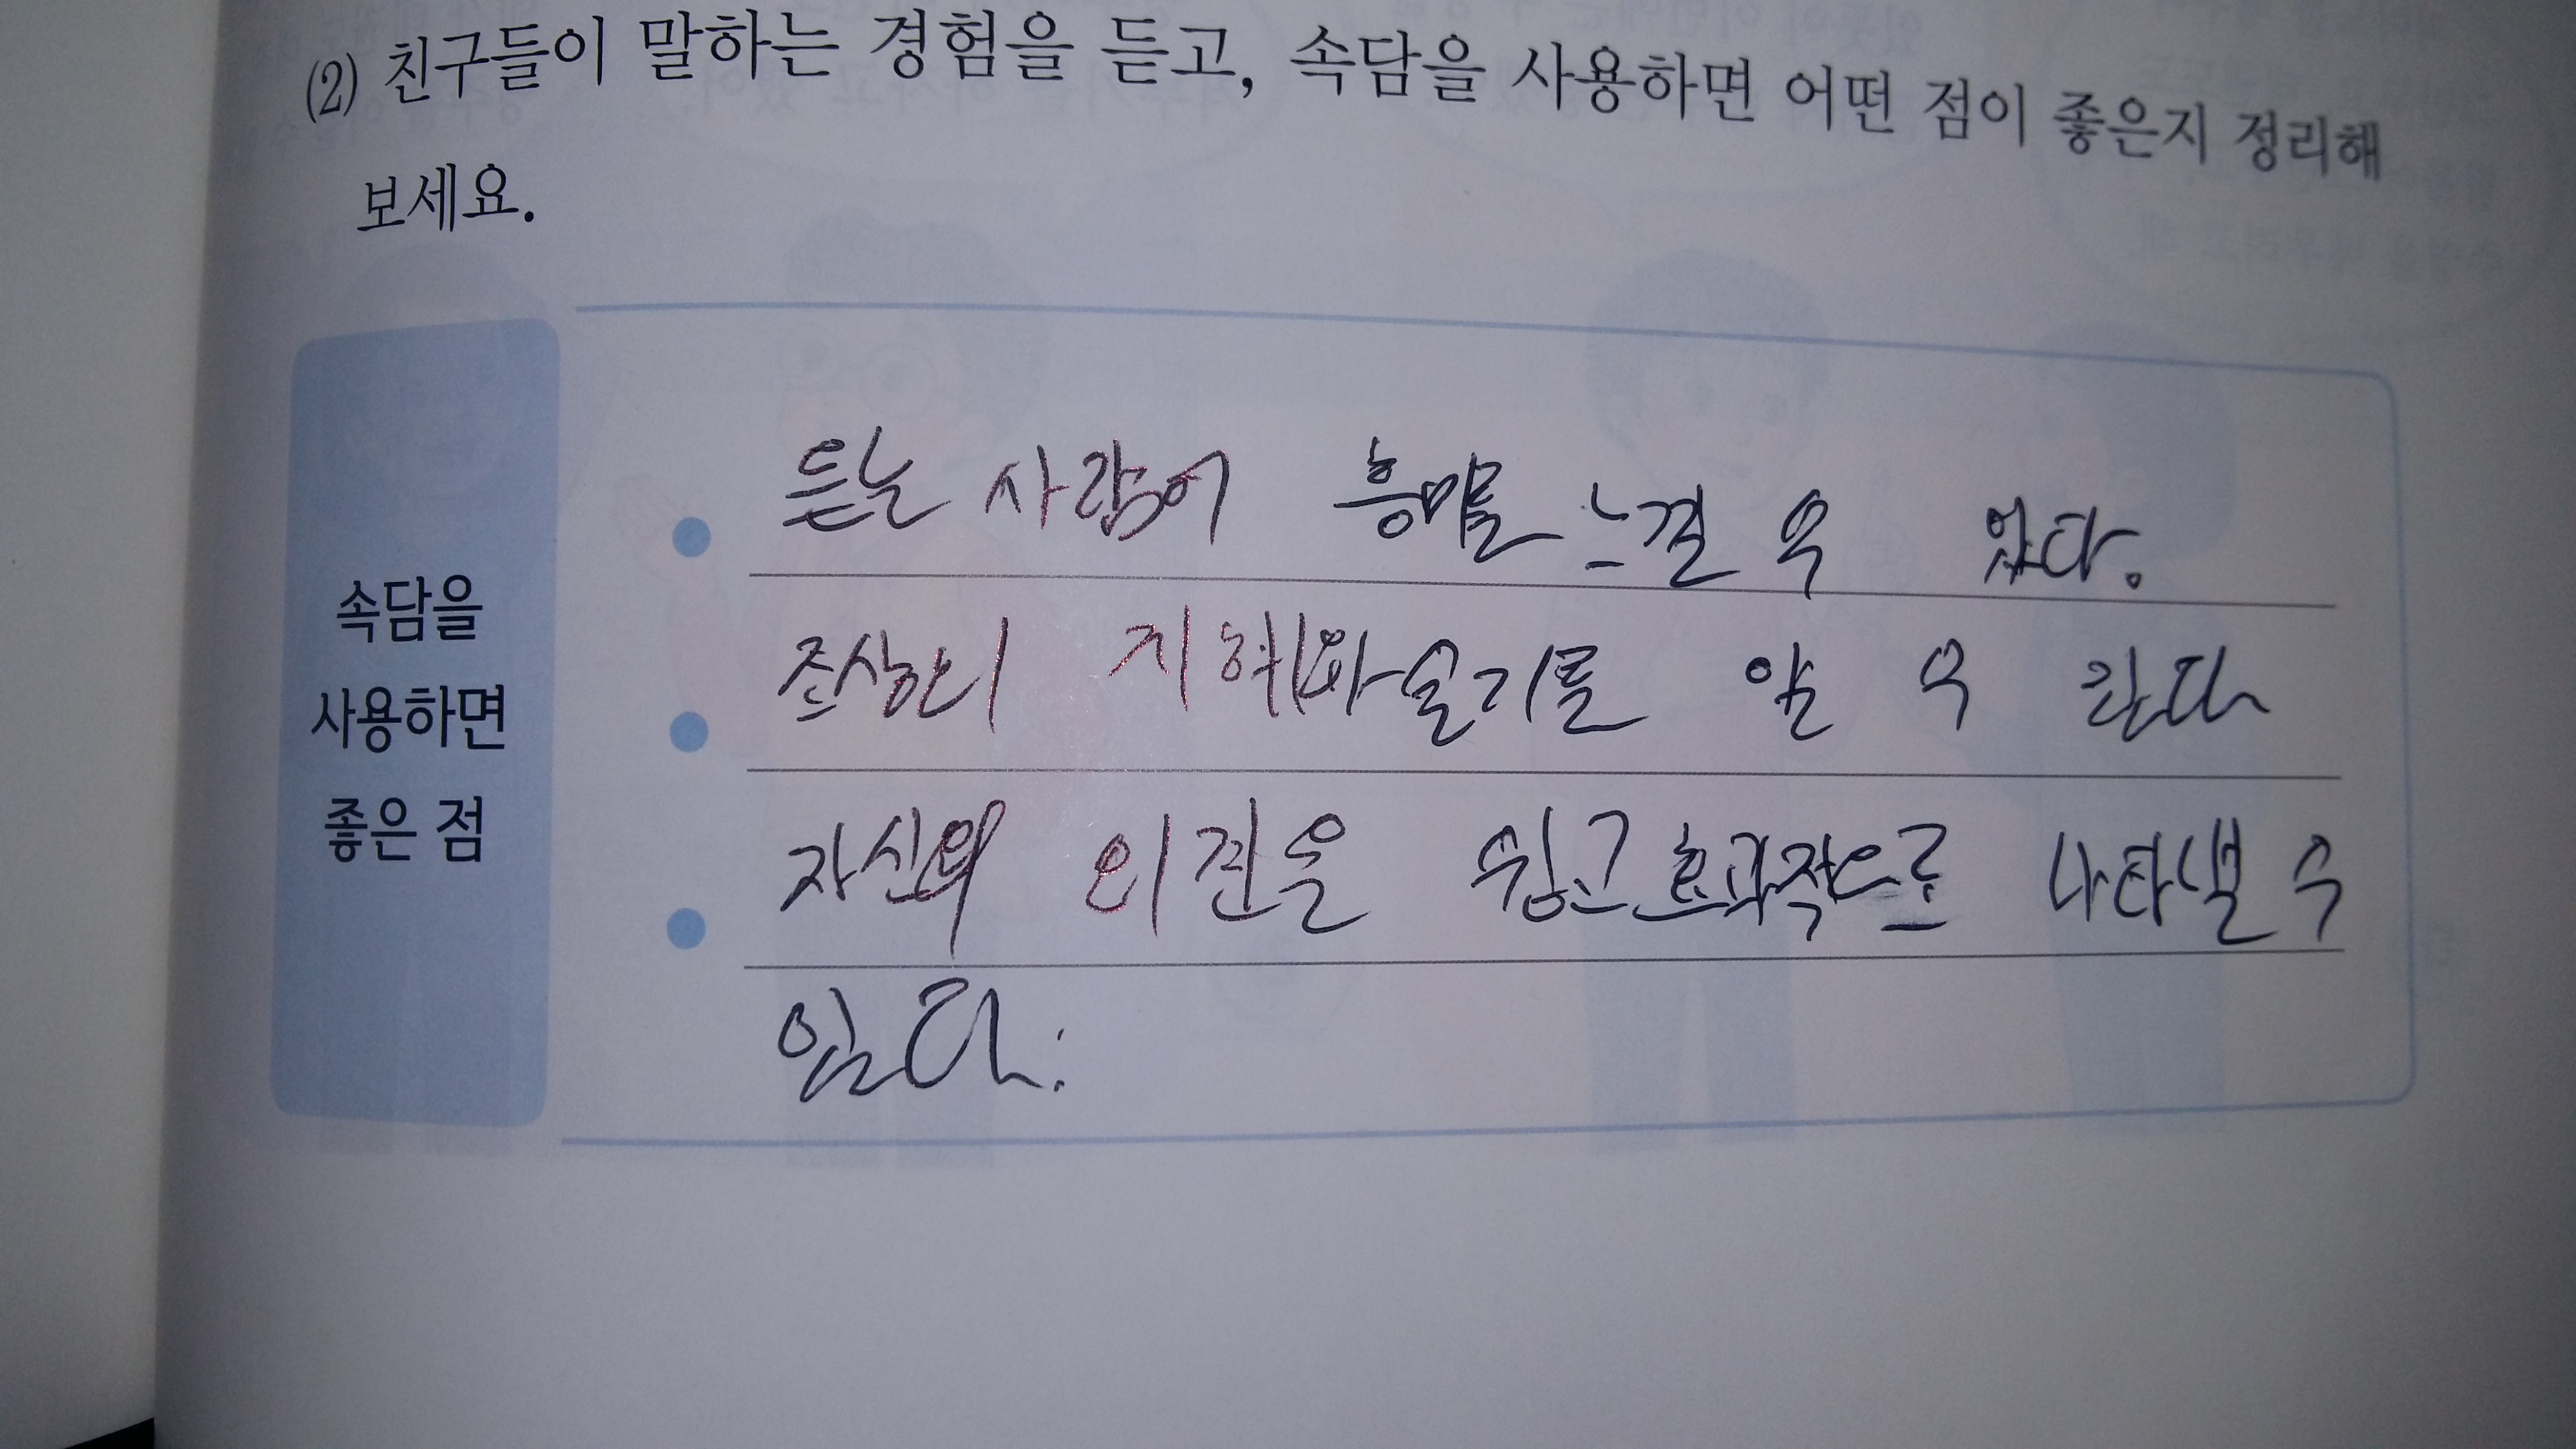 (2) 친구들이 말하는 경험을 듣고, 속담을 사용하면 어떤 점이 좋은지 정리해
보세요.
속담을
사용하면
좋은 점
듣는 사람이 흥미를 느낄 수 있다.
조상의 지혜와 슬기를 알 수 있다
자신의 의견을 쉽고 효과적으로 나타낼 수
있다.